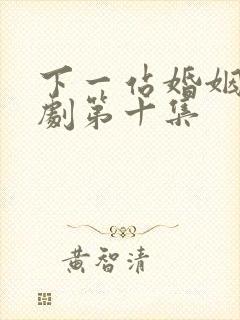 下一站婚姻
劇第十集
黄智清